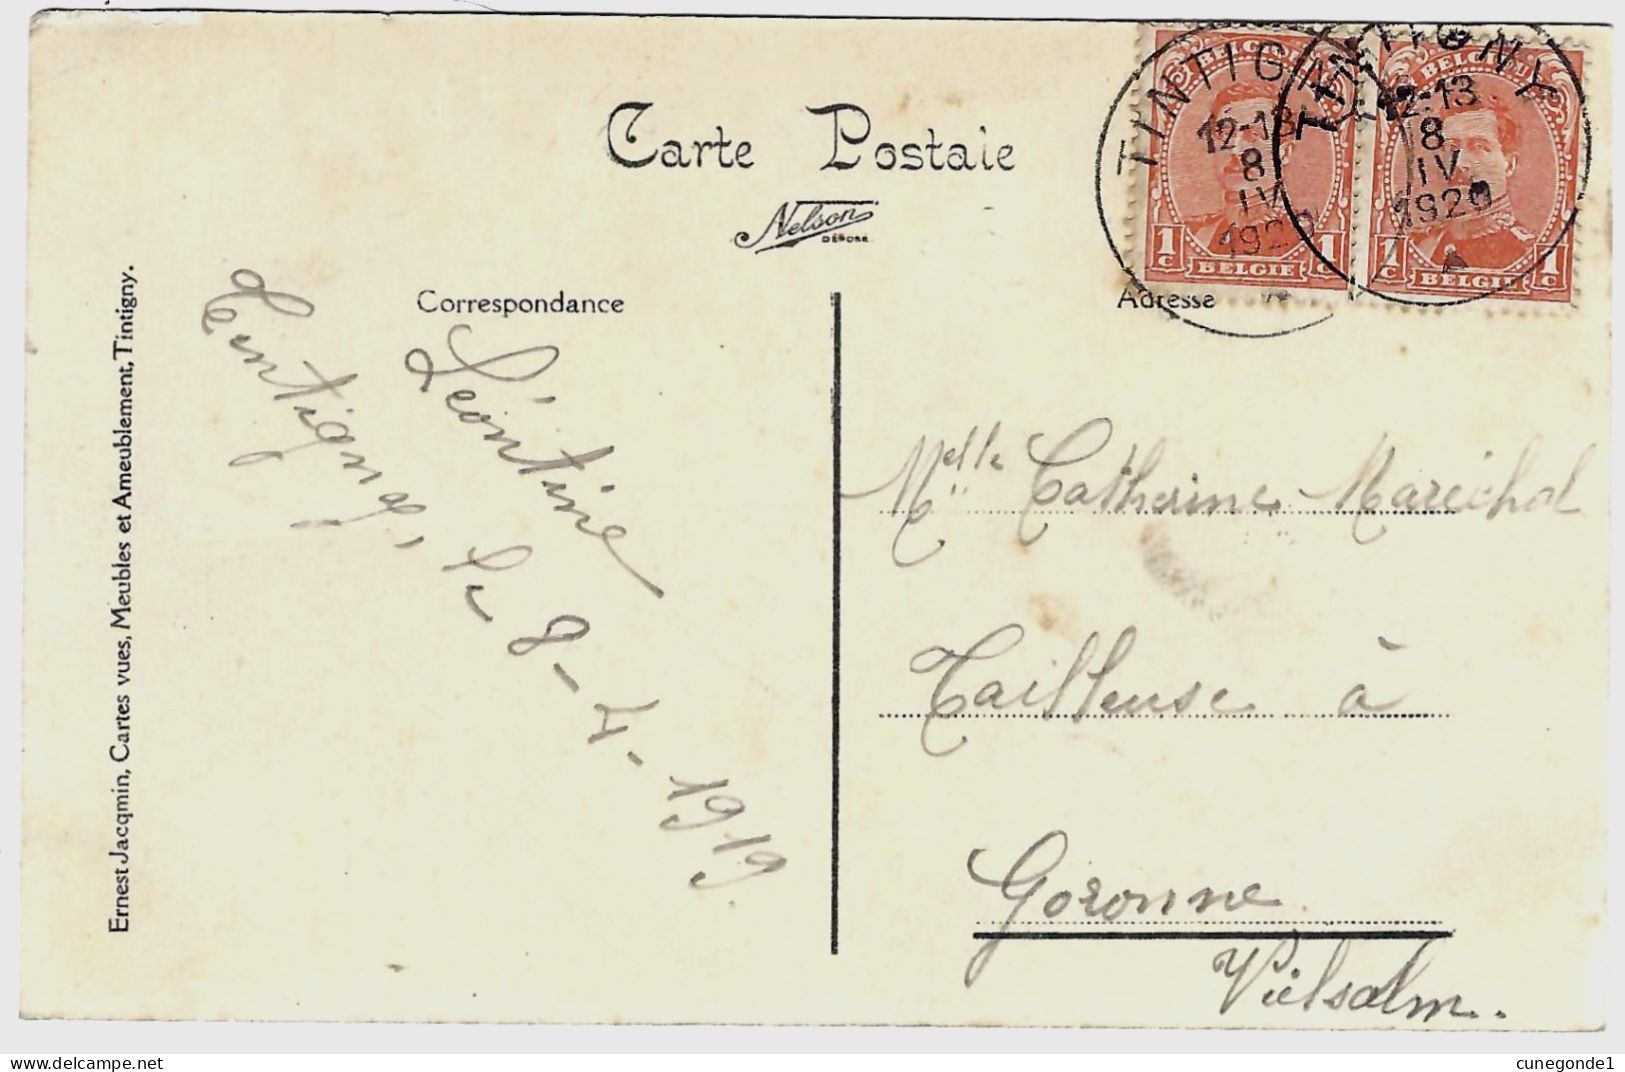 Carte Postale
Nelson
DÉPOSÉ
Correspondance
Adresse
TINTIGNY
12-13
8
IV
1920
TINTIGNY
12-13
8
IV
1920
BELGIQUE
1c 1c
BELGIË
BELGIQUE
1c 1c
BELGIË
Léontine
Tintigny, le 8-4-1919
Melle Catherine Maréchal
Tailleuse à
Goronne
Vielsalm.
Ernest Jacqmin, Cartes vues, Meubles et Ameublement, Tintigny.
www.delcampe.net
cunegonde1